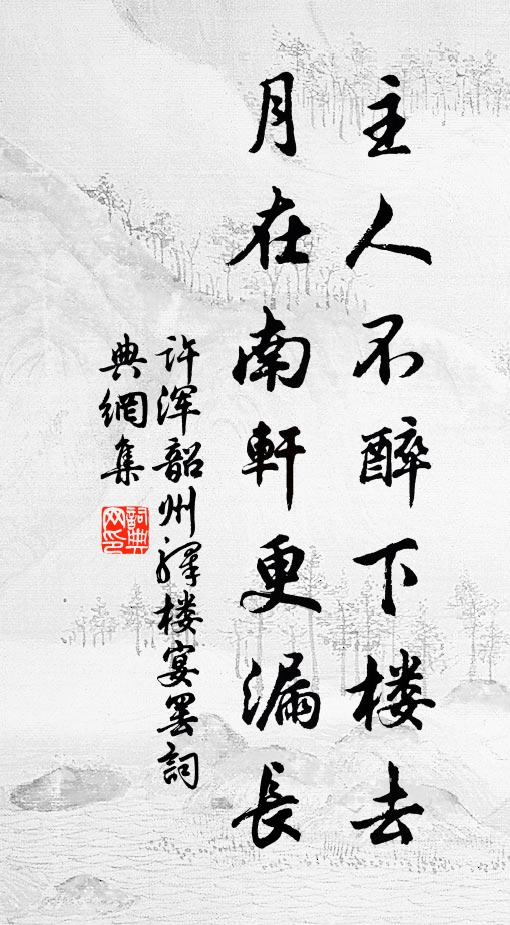 主人不醉下楼去
月在南軒更漏長
许浑韶州驿楼宴罢詞
典網集
詞典网印